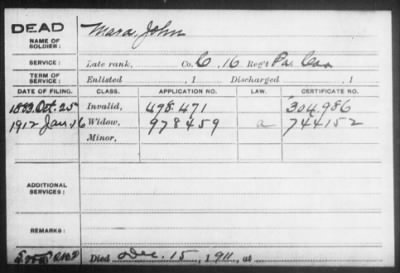 DEAD
NAME OF SOLDIER: Mara, John
SERVICE: Late rank, Co. C, 16 Reg't Pa. Cav
TERM OF SERVICE: Enlisted , 1 Discharged , 1
DATE OF FILING. CLASS. APPLICATION NO. LAW. CERTIFICATE NO.
1883 Oct. 25 Invalid, 498.471 304.986
1912 Jan. 16 Widow, 978459 a 744152
Minor,
ADDITIONAL SERVICES:
REMARKS:
Died Dec. 15, 1911, at